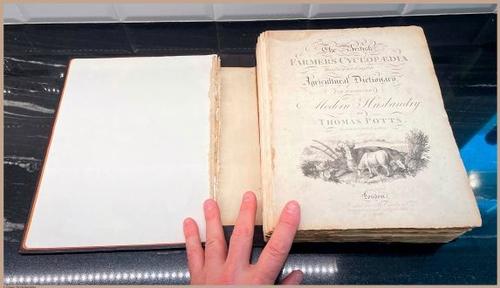 The British
FARMERS CYCLOPÆDIA
Agricultural Dictionary
Modern Husbandry
THOMAS POTTS
London